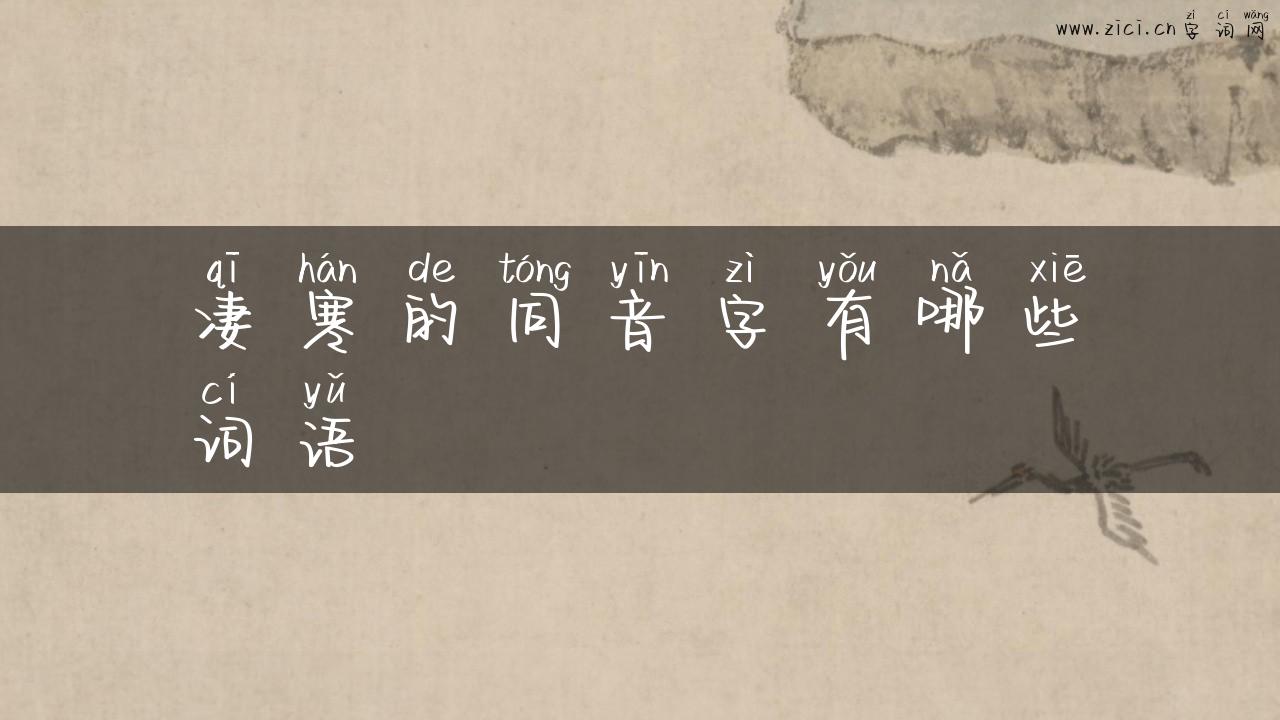 zì cí wǎng
www.zici.cn 字词网
qī hán de tóng yīn zì yǒu nǎ xiē
凄寒的同音字有哪些
cí yǔ
词语